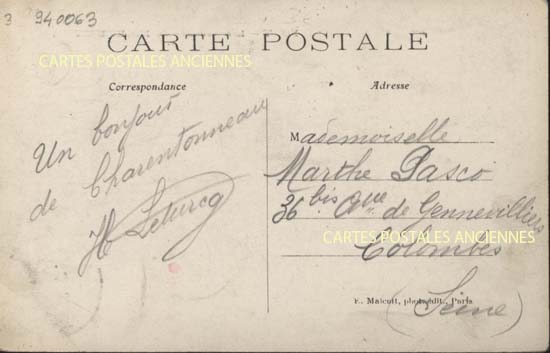 3 940063
CARTE POSTALE
CARTES POSTALES ANCIENNES
Correspondance
Adresse
Un bonjour
de Charentonneau
H Leturcq
Mademoiselle
Marthe Pasco
36 bis Aue de Gennevilliers
CARTES POSTALES ANCIENNES
Colombes
(Seine)
F. Malcuit, phot. édit., Paris